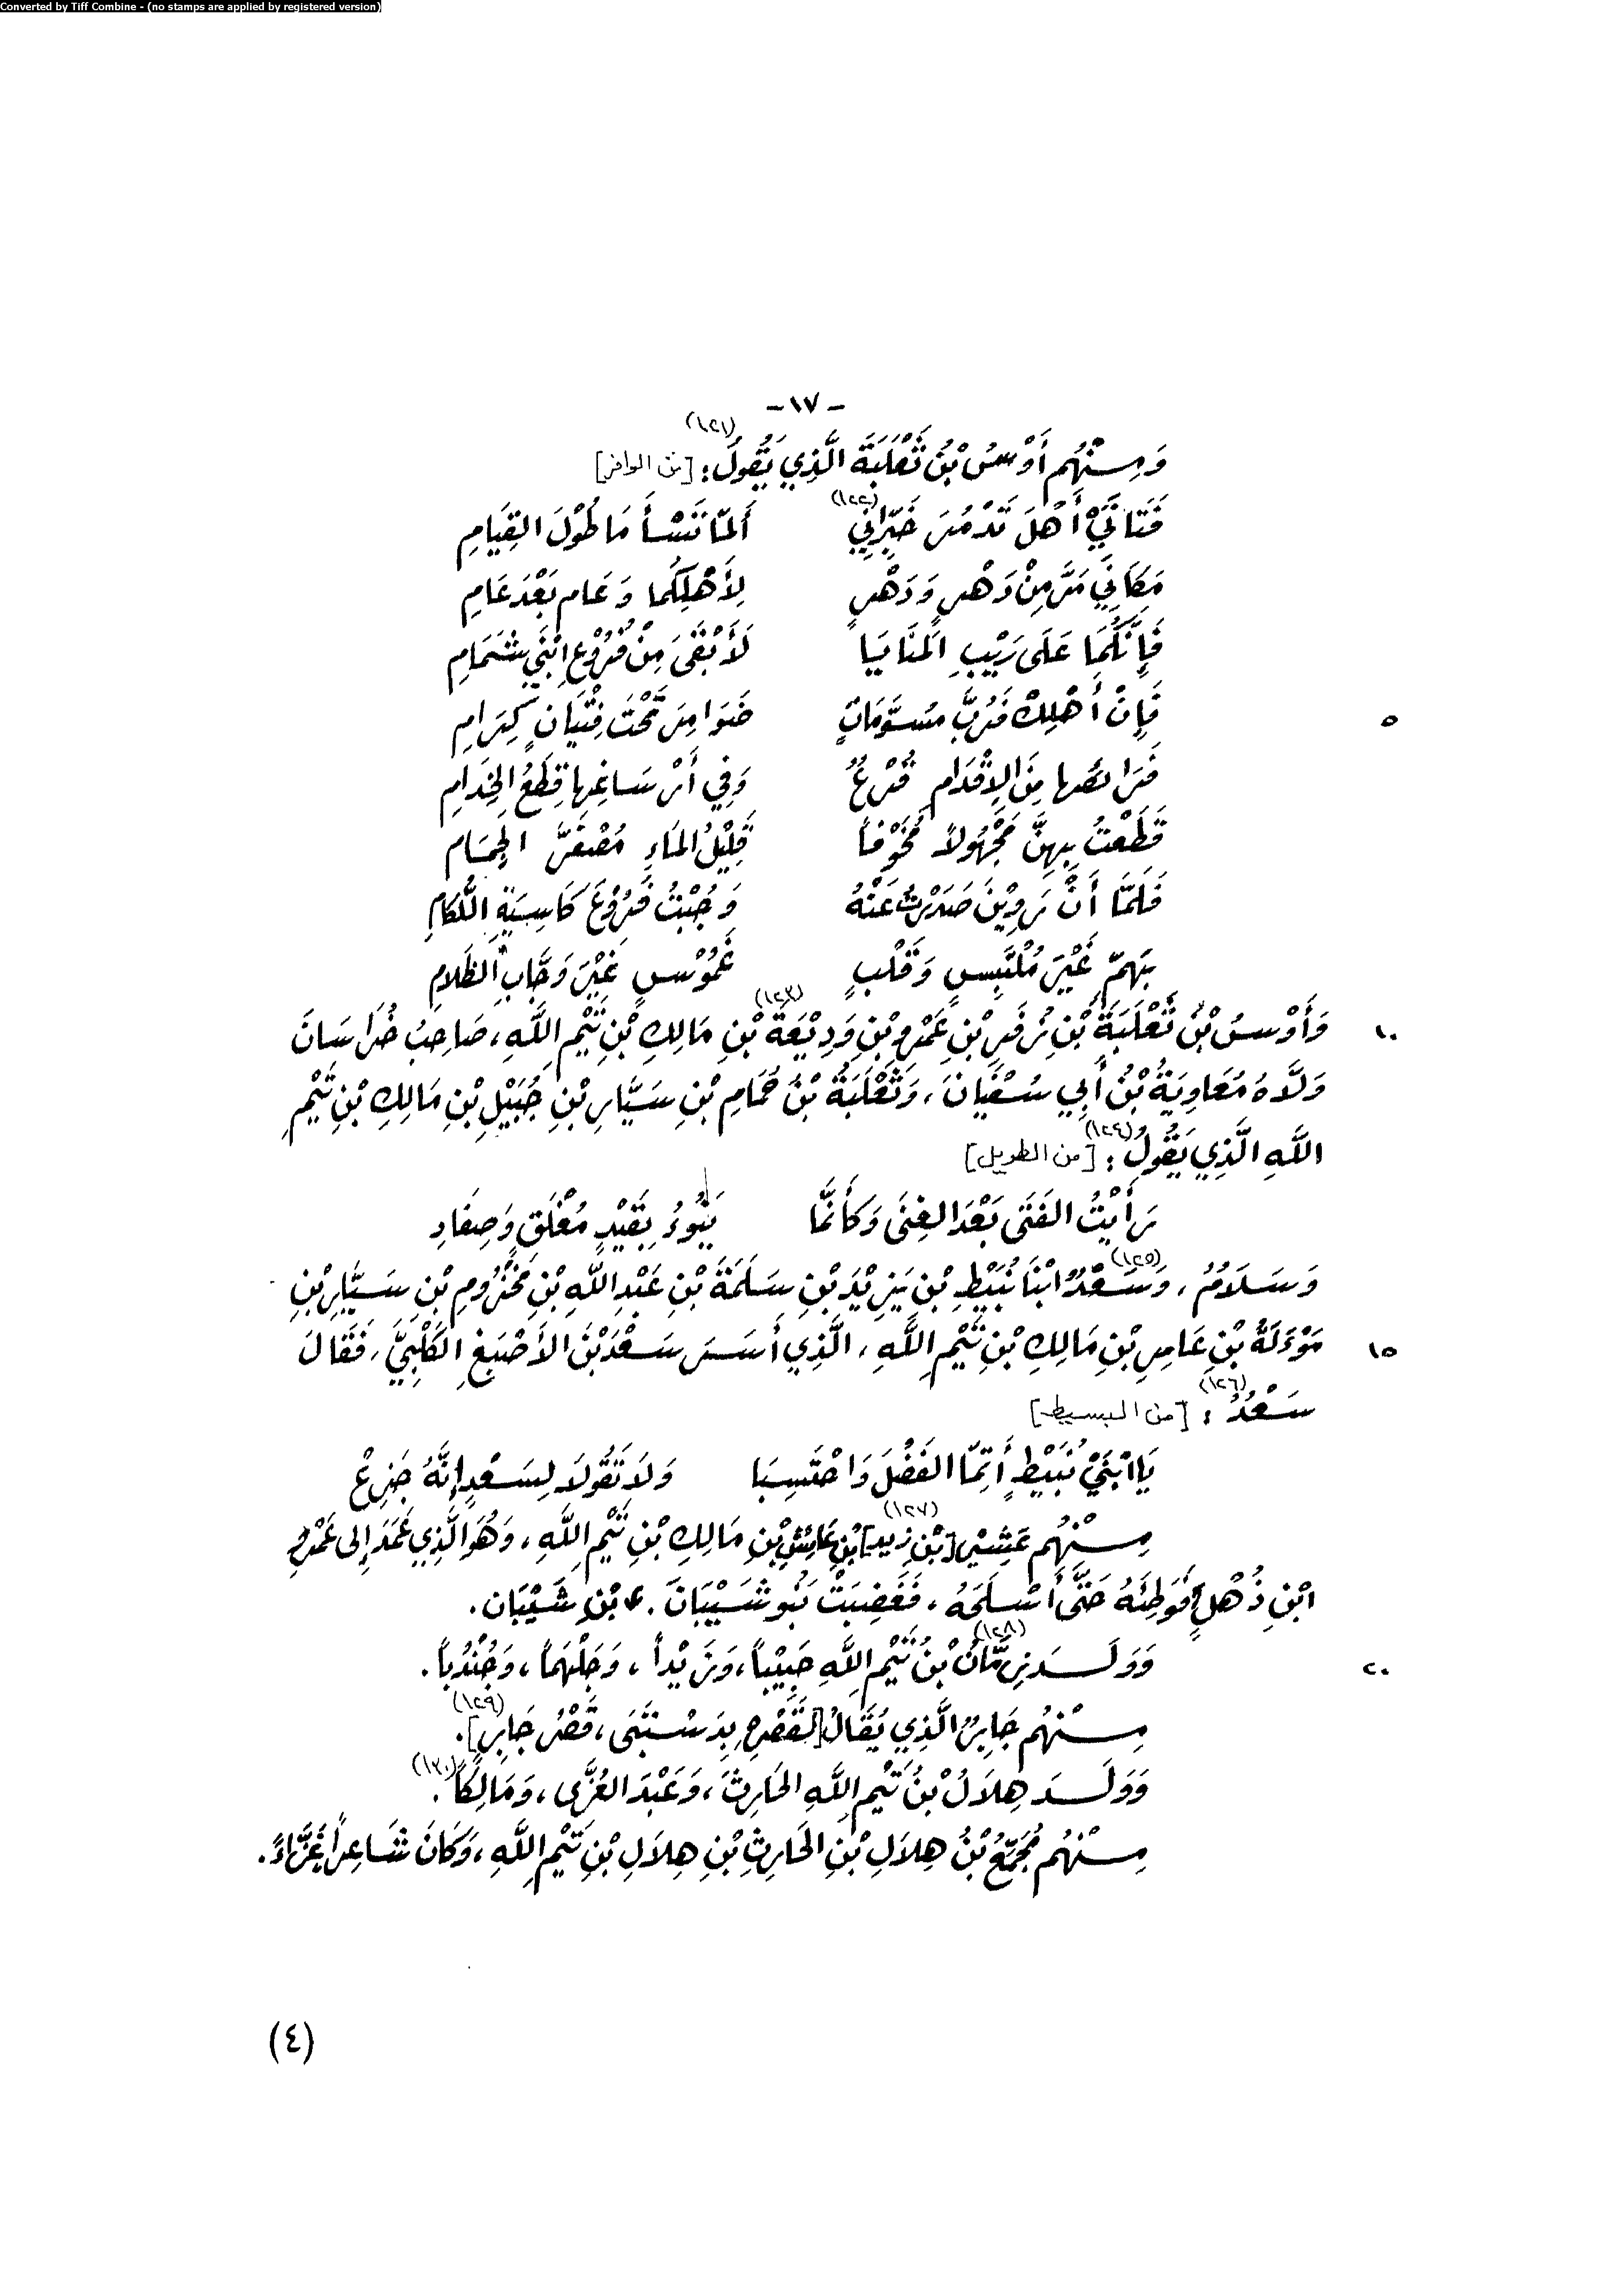 Converted by Tiff Combine - (no stamps are applied by registered version)
- ١٧ -
وَمِنْهُم أَوْسُ بْنُ ثَعْلَبَةَ الَّذِي يَقُولُ: (١٢١) [من الوافر]
فَتَاتَيْ أَهْلَ تَدْمُرَ خَبِّرَانِي (١٢٢) أَلَمَّا تَسْأَمَا طُوْلَ القِيَامِ
مَكَانِي مَرَّ مِنْ دَهْرٍ وَدَهْرٍ لِأَهْلِكُمَا وَعَامٍ بَعْدَ عَامِ
فَإِنَّكُمَا عَلَى رَيْبِ المَنَايَا لَأَبْقَى مِنْ فُرُوْعِ ابْنَيْ شَمَامِ
٥ فَإِنْ أَهْلِكْ فَرُبَّ مُسَوَّمَاتٍ ضَوَامِرَ تَحْتَ فِتْيَانٍ كِرَامِ
فَرَائصُها مِنَ الإِقْدَامِ قُرْعٌ وَفِي أَرْسَاغِهَا قِطَعُ الخِدَامِ
قَطَعْتُ بِهِنَّ مَجْهُولاً مَخُوْفاً قَلِيْلَ المَاءِ مُصْفَرَّ الجِمَامِ
فَلَمَّا أَنْ رَوِيْنَ صَدَرْتُ عَنْهُ وَجُبْتُ فُرُوْعَ كَاسِيَةِ اللُّكَامِ
بِهَمٍّ غَيْرَ مُلْتَبِسٍ وَقَلْبٍ غَمُوْسٍ غَيْرَ وَجَّابِ الظَلَامِ
١٠ وَأَوْسُ بْنُ ثَعْلَبَةَ بْنِ زُفَرِ بْنِ عَمْرِو بْنِ وَدِيْعَةَ (١٢٣) بْنِ مَالِكِ بْنِ تَيْمِ اللَّهِ، صَاحِبُ خُرَاسَانَ
وَلَّاهُ مُعَاوِيَةُ بْنُ أَبِي سُفْيَانَ، وَثَعْلَبَةُ بْنُ حُمَامِ بْنِ سَيَّارِ بْنِ جُبَيْلِ بْنِ مَالِكِ بْنِ تَيْمِ
اللَّهِ الَّذِي يَقُولُ: (١٢٤) [من الطويل]
رَأَيْتُ الفَتَى بَعْدَ الغِنَى وَكَأَنَّمَا يَنُوءُ بِقَيْدٍ مُغْلَقٍ وَصِفَادِ
وَسَلَامُ، وَسَعْدٌ (١٢٥) ابْنَا نُبَيْطِ بْنِ يَزِيْدَ بْنِ سَلَمَةَ بْنِ عَبْدِ اللَّهِ بْنِ مَخْزُومِ بْنِ سَيَّارِ بْنِ
١٥ مَوْءَلَةَ بْنِ عَامِرِ بْنِ مَالِكِ بْنِ تَيْمِ اللَّهِ، الَّذِي أَسَرَ سَعْدَ بْنَ الأَصْبَغِ الكَلْبِيَّ، فَقَالَ
سَعْدٌ: (١٢٦) [من البسيط]
يَا ابْنَيْ نُبَيْطٍ أَتِمَّا الفَضْلَ وَاحْتَسِبَا وَلَا تَقُولَا لِسَعْدٍ إِنَّهُ جَزِعُ
مِنْهُم عَشْيَر [بْن زيد] (١٢٧) بْنِ عَائِشِ بْنِ مَالِكِ بْنِ تَيْمِ اللَّهِ، وَهُوَ الَّذِي عَمَدَ إِلى عَمْرِو
ابْنِ ذُهْلٍ فَوَطِئَهُ حَتَّى أَسْلَحَهُ، فَغَضِبَتْ بَنُو شَيْبَانَ. بْنِ شَيْبَان.
٢٠ وَوَلَدَ زِمَّانُ (١٢٨) بْنُ تَيْمِ اللَّهِ حَبِيْباً، وَزَيْداً، وَجَلْهَماً، وَجُنْدُباً.
مِنْهُم جَابِرٌ الَّذِي يُقَالُ [لقَصْرِهِ بِدَسْتَبَى، قَصْرُ جَابِرٍ]. (١٢٩)
وَوَلَدَ هِلَالُ بْنُ تَيْمِ اللَّهِ الحَارِثَ، وَعَبْدَ العُزَّى، وَمَالِكاً. (١٣٠)
مِنْهُم مُجَمِّعُ بْنُ هِلَالِ بْنِ الحَارِثِ بْنِ هِلَالِ بْنِ تَيْمِ اللَّهِ، وَكَانَ شَاعِراً غَزَّاءً.
(٤)